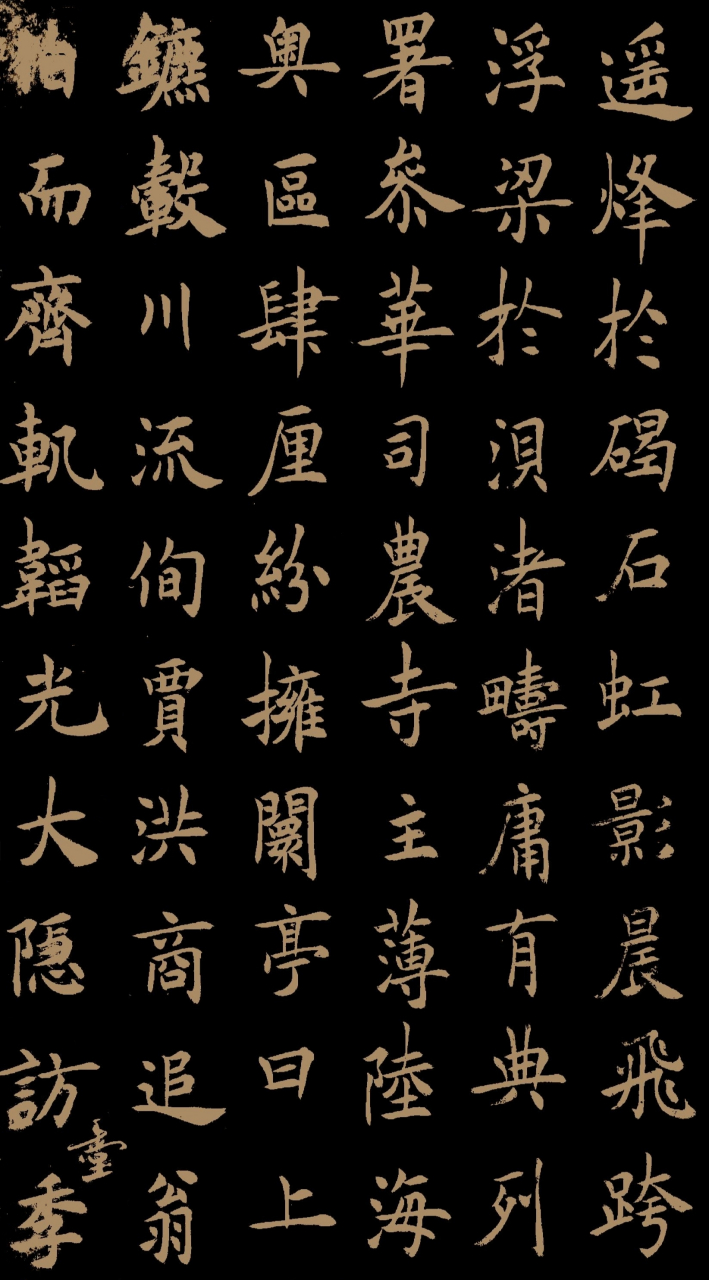 遥烽於碣石虹影晨飛跨
浮梁於浿渚疇庸有典列
署叅華司農寺主薄陸海
奥區肆厘紛擁闤亭曰上
鑣轂川流侚賈洪商追翁
伯而齊軌韜光大隠訪季